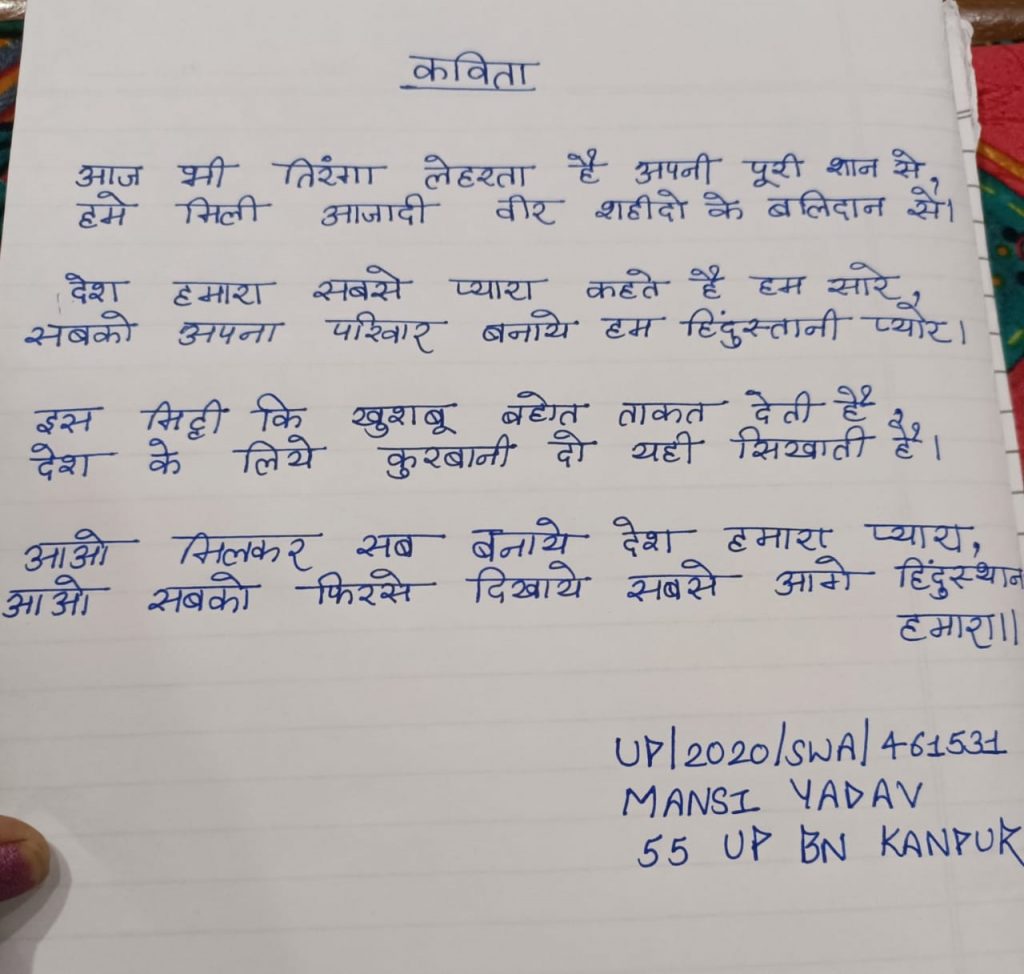 कविता
आज भी तिरंगा लेहरता है अपनी पूरी शान से,
हमे मिली आजादी वीर शहीदो के बलिदान से।
देश हमारा सबसे प्यारा कहते है हम सारे,
सबको अपना परिवार बनाये हम हिंदुस्तानी प्यारे।
इस मिट्टी कि खुशबू बहोत ताकत देती है,
देश के लिये कुरबानी दो यही सिखाती है।
आओ मिलकर सब बनाये देश हमारा प्यारा,
आओ सबको फिरसे दिखाये सबसे आगे हिंदुस्थान
हमारा॥
UP/2020/SWA/461531
MANSI YADAV
55 UP BN KANPUR